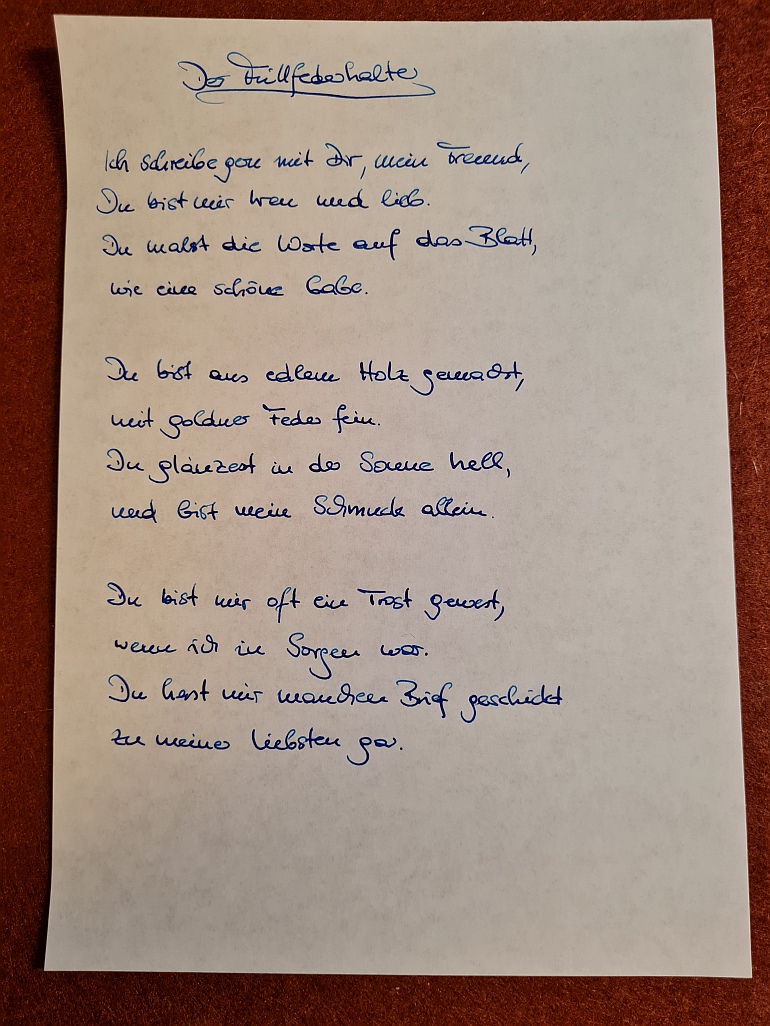 Der Füllfederhalter
Ich schreibe gern mit Dir, mein Freund,
Du bist mir treu und lieb.
Du malst die Worte auf das Blatt,
wie eine schöne Gabe.
Du bist aus edlem Holz gemacht,
mit goldner Feder fein.
Du glänzest in der Sonne hell,
und bist mein Schmuck allein.
Du bist mir oft ein Trost gewest,
wenn ich in Sorgen war.
Du hast mir manchen Brief geschickt
zu meiner Liebsten gar.